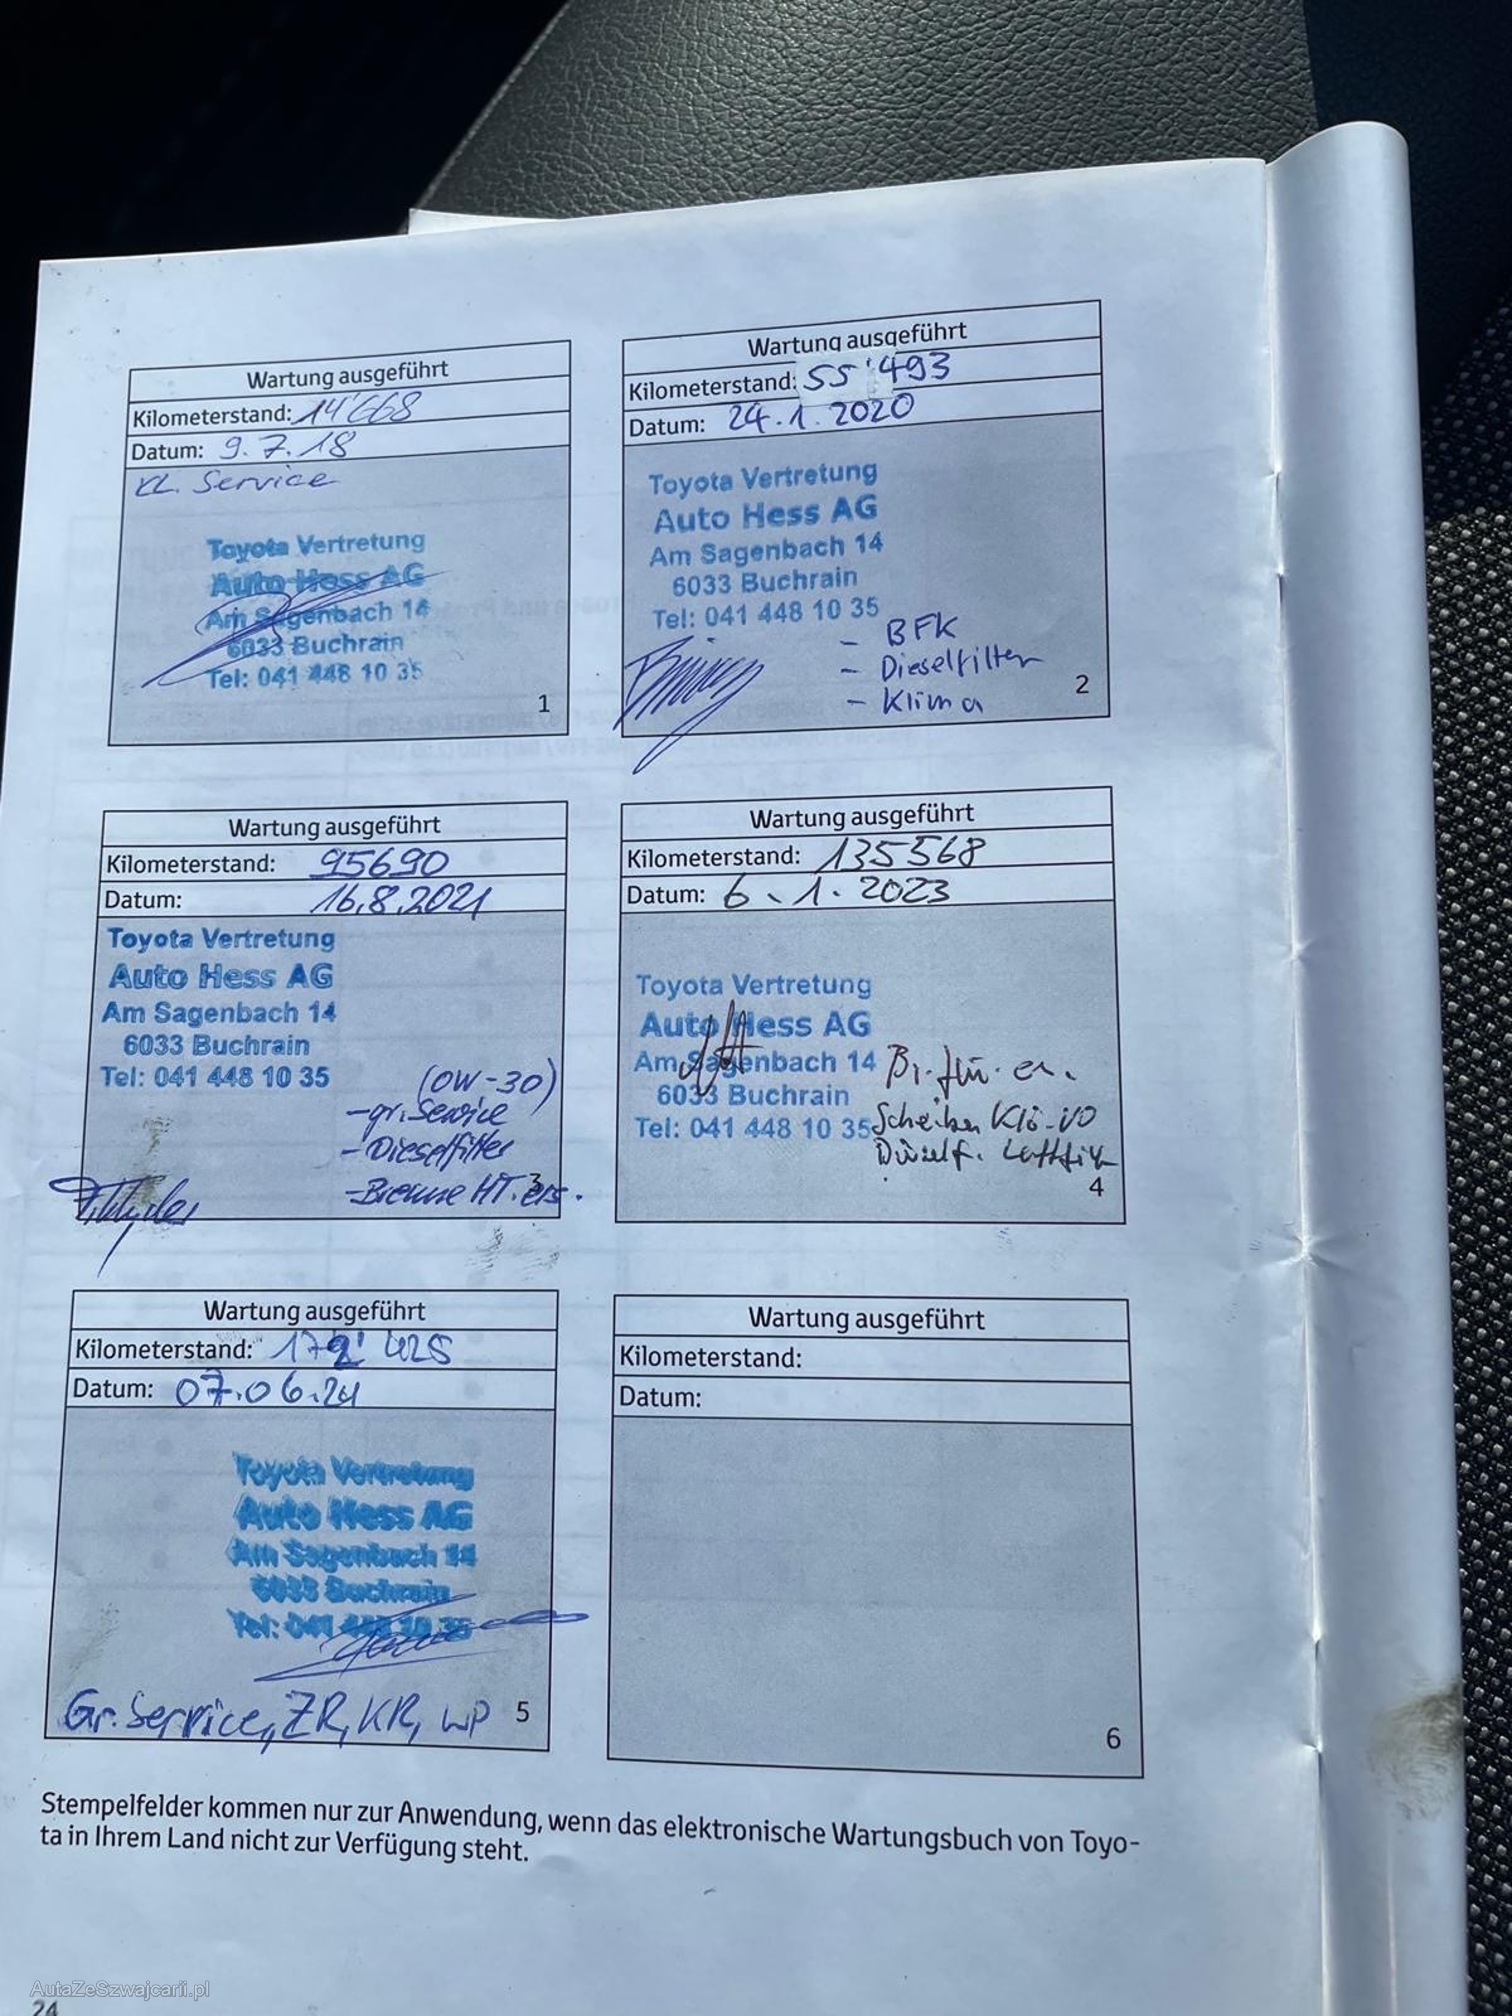 Wartung ausgeführt
Kilometerstand: 14'668
Datum: 9.7.18
kl. Service
Toyota Vertretung
Auto Hess AG
Am Sagenbach 14
6033 Buchrain
Tel: 041 448 10 35
1
Wartung ausgeführt
Kilometerstand: 55'493
Datum: 24.1.2020
Toyota Vertretung
Auto Hess AG
Am Sagenbach 14
6033 Buchrain
Tel: 041 448 10 35
- BFK
- Dieselfilter
- Klima
2
Wartung ausgeführt
Kilometerstand: 95690
Datum: 16.8.2021
Toyota Vertretung
Auto Hess AG
Am Sagenbach 14
6033 Buchrain
Tel: 041 448 10 35
(0W-30)
- gr. Service
- Dieselfilter
- Bremse HT. ers.
3
Wartung ausgeführt
Kilometerstand: 135568
Datum: 6.1.2023
Toyota Vertretung
Auto Hess AG
Am Sagenbach 14
6033 Buchrain
Tel: 041 448 10 35
Scheiben Klö-VO
4
Wartung ausgeführt
Kilometerstand: 172'425
Datum: 07.06.24
Toyota Vertretung
Auto Hess AG
Am Sagenbach 14
6033 Buchrain
Tel: 041 448 10 35
Gr. Service, ZR, KR, WP
5
Wartung ausgeführt
Kilometerstand:
Datum:
6
Stempelfelder kommen nur zur Anwendung, wenn das elektronische Wartungsbuch von Toyo-
ta in Ihrem Land nicht zur Verfügung steht.
AutaZeSzwajcarii.pl
24